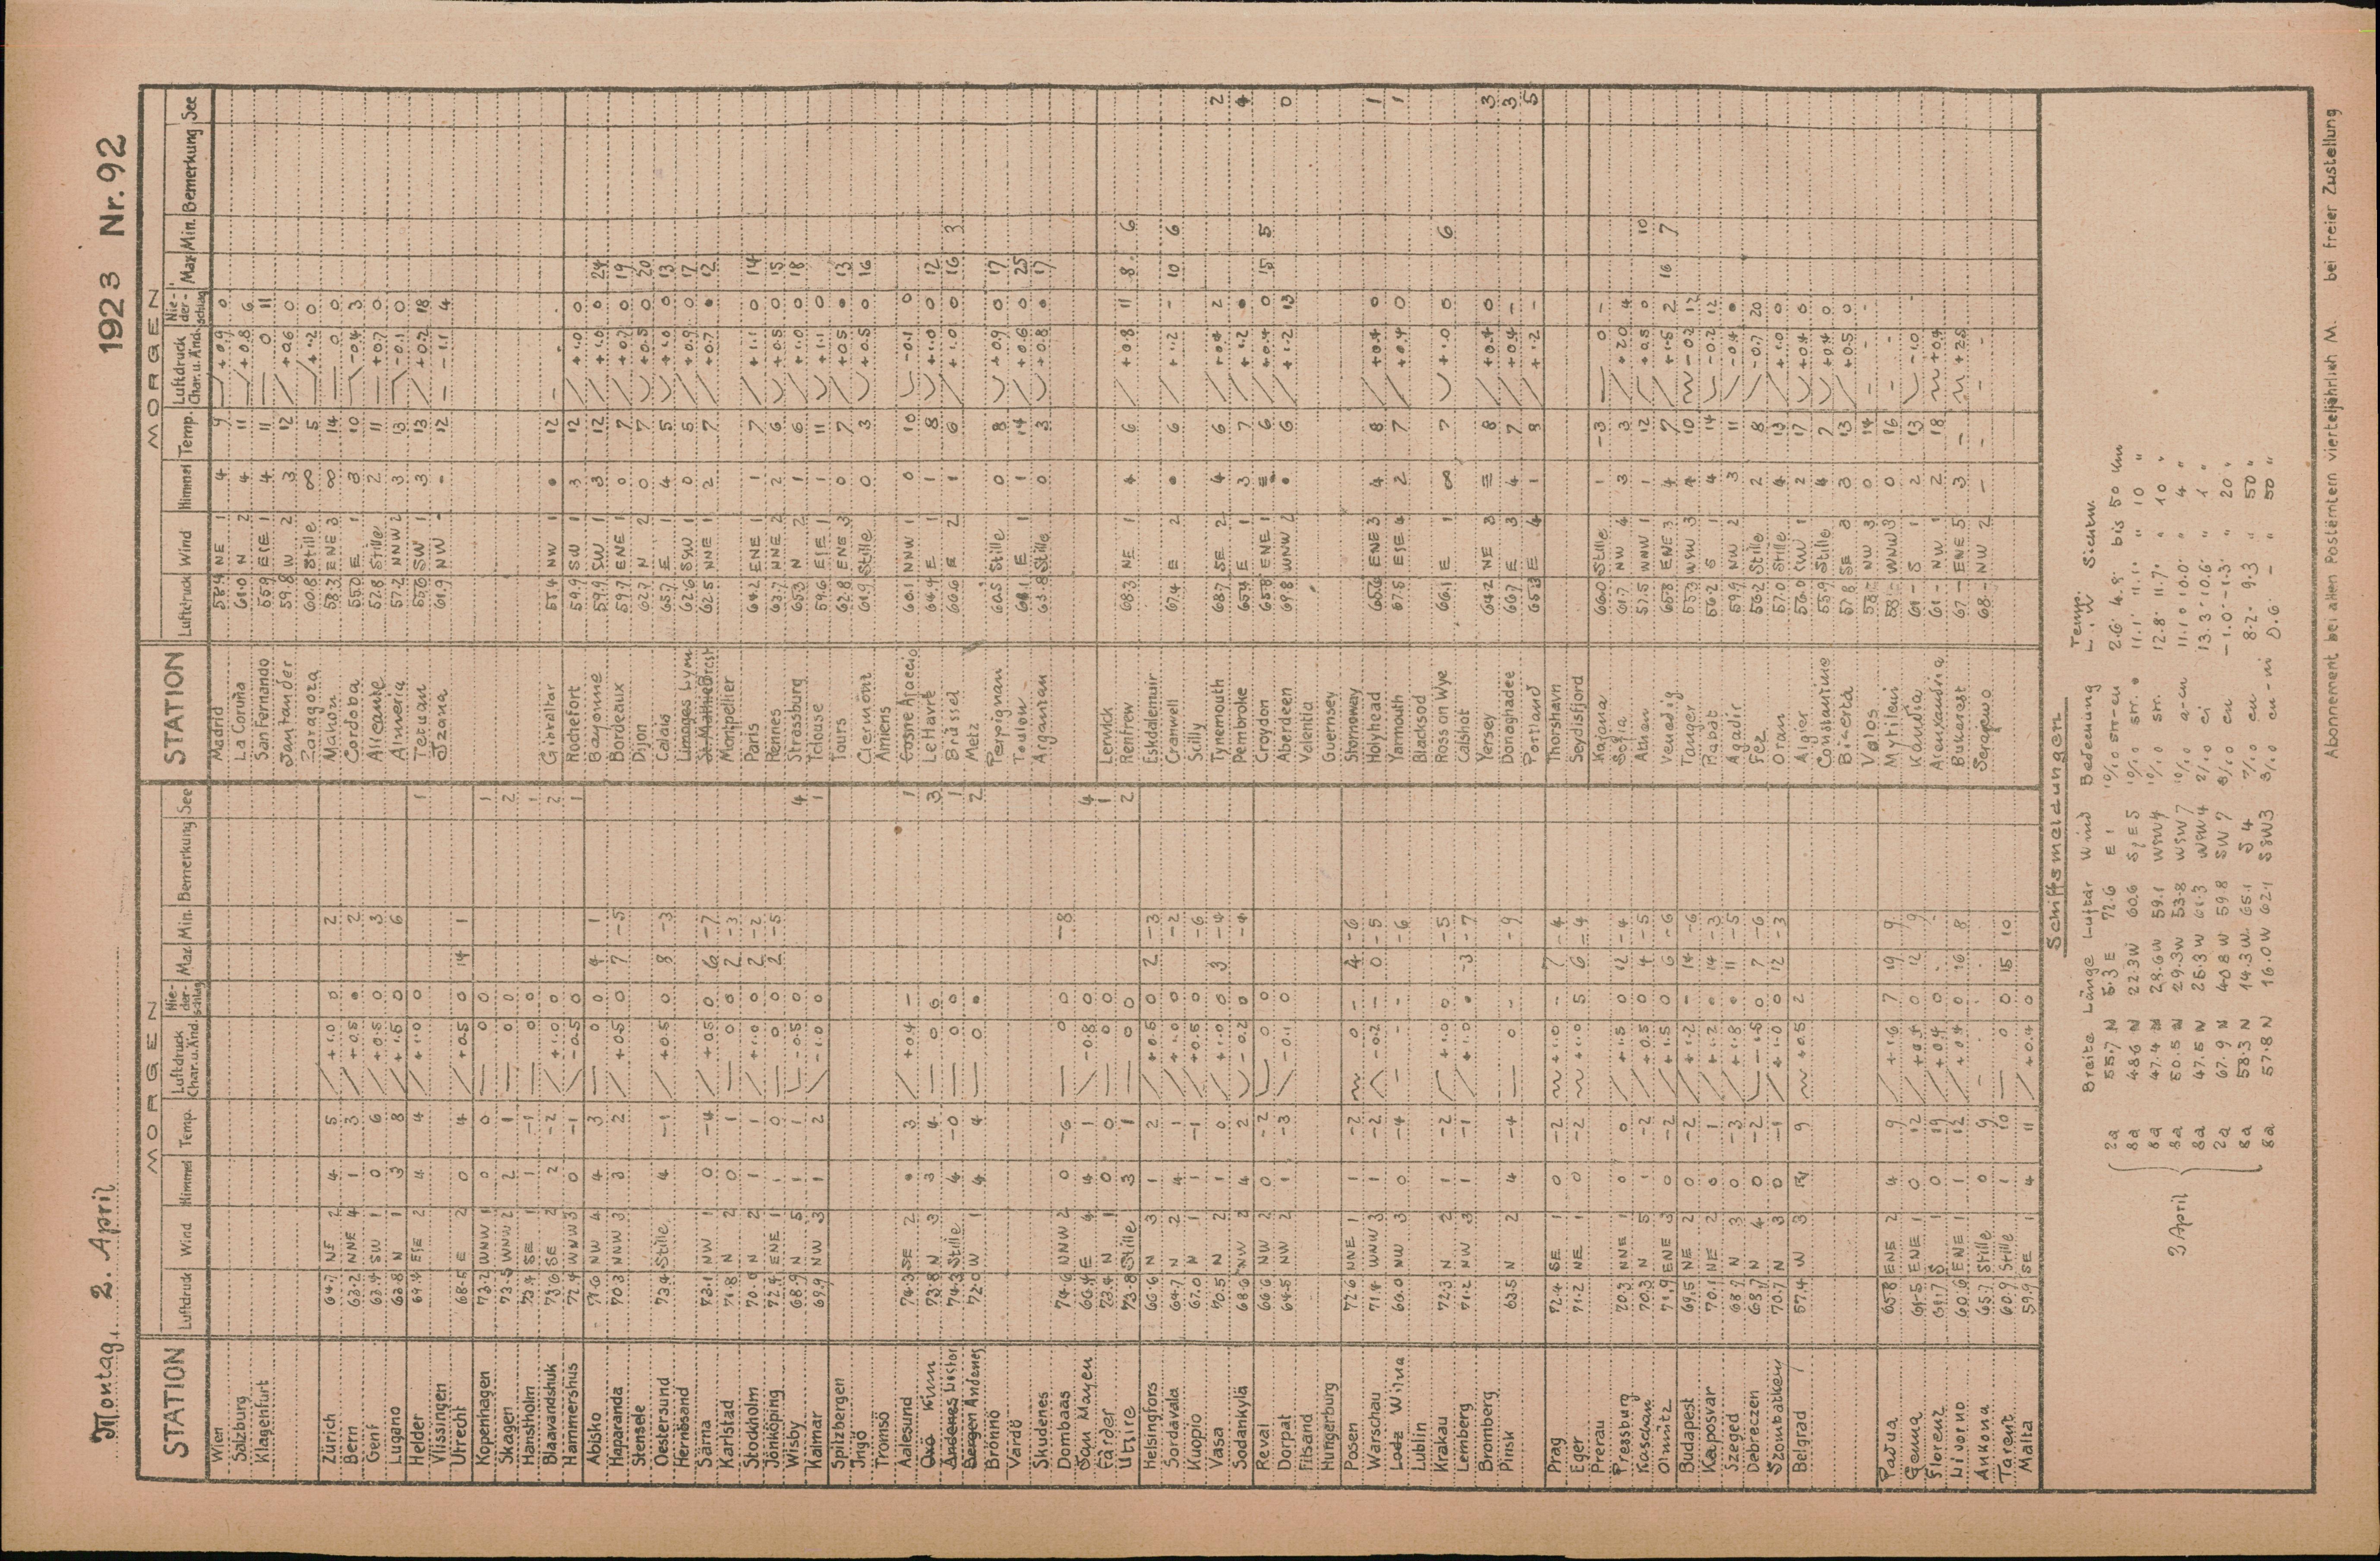 Montag. 2. April 1923 Nr. 92
MORGEN
STATION Luftdruck Wind Himmel Temp. Luftdruck Char. u. Änd. Nie-der-schlag Max Min. Bemerkung See
Wien
Salzburg
Klagenfurt
Zürich 64.7 NE 2 4 5 +1.0 0 2
Bern 63.2 NNE 4 1 3 +0.5 • 2
Genf 63.4 SW 1 0 6 +0.5 0 3
Lugano 63.8 N 1 3 8 +1.5 0 6
Helder 69.4 ESE 2 4 4 +1.0 0 1
Vlissingen
Utrecht 68.5 E 2 0 4 +0.5 0 14 1
Kopenhagen 73.2 WNW 1 0 0 0 0 1
Skagen 73.5 WNW 2 2 1 0 0 2
Hanstholm 73.4 SE 1 1 -1 0 0 1
Blaavandshuk 73.6 SE 2 2 -2 +1.0 0 2
Hammershus 72.4 WNW 3 0 -1 -0.5 0 1
Abisko 71.6 NW 4 4 3 0 0 4 1
Haparanda 70.3 NNW 3 3 2 +0.5 0 7 -5
Stensele
Oestersund 73.4 Stille 4 -1 +0.5 0 8 -3
Hernösand
Särna 73.1 NW 1 0 -4 +0.5 0 6 -7
Karlstad 71.8 N 2 0 1 0 0 2 -3
Stockholm 70.9 N 2 1 1 +1.0 0 2 -2
Jönköping 72.4 ENE 1 1 0 0 0 2 -5
Wisby 68.9 N 5 1 1 -0.5 0 4
Kalmar 69.9 NW 3 1 2 -1.0 0 1
Spitzbergen
Ingö
Tromsö
Aalesund 74.3 SE 2 • 3 +0.4 - 1
Oxö Kinn 73.8 N 3 3 4 0 6 3
Andenes 74.3 Stille 4 -0 0 0 1
Bergen Andenes 72.0 W 1 4 4 0 • 2
Brönnö
Vardö
Skudenes
Dombaas 74.6 NNW 2 0 -6 0 0 -8
Jan Mayen 66.4 E 4 4 1 -0.8 0 4
Färder 73.4 N 1 0 0 0 0 1
Utsire 73.8 Stille 3 1 0 0 2
Helsingfors 66.6 N 3 1 2 +0.5 0 2 -3
Sordavala 64.7 N 2 4 1 +1.0 0 -2
Kuopio 67.0 N 1 1 -1 +0.5 0 -6
Vasa 70.5 N 2 1 0 +1.0 0 3 -4
Sodankylä 68.6 NW 2 4 2 -0.2 • -4
Reval 66.6 NW 2 0 -2 0 0
Dorpat 64.5 NW 2 1 -3 -0.1 0
Filsand
Hungerburg
Posen 72.6 NNE 1 1 -2 0 - 4 -6
Warschau 71.4 WNW 3 1 -2 -0.2 - 0 -5
Lodz Wilna 66.0 NW 3 0 -4 - - -6
Lublin
Krakau 72.3 N 2 1 -2 +1.0 0 -5
Lemberg 71.2 NW 3 1 -1 +1.0 • -3 -7
Bromberg
Pinsk 63.5 N 2 4 -4 0 - -9
Prag 72.4 SE 1 0 -2 +1.0 - 7 -4
Eger 71.2 NE 1 0 -2 +1.0 5 6 -4
Prerau
Pressburg 70.3 NNE 1 0 0 +1.5 0 12 -4
Kaschau 70.3 N 5 1 -2 +0.5 0 4 -5
Olmütz 71.9 ENE 3 0 -2 +1.5 0 6 -6
Budapest 69.5 NE 2 0 -2 +1.2 - 14 -6
Kaposvar 70.1 NE 2 0 1 +1.2 • 14 -3
Szeged 68.7 N 3 0 -3 +1.8 • 11 -5
Debreczen 68.7 N 4 0 -2 -1.5 0 7 -6
Szombatkely 70.7 N 3 0 -1 +1.0 0 12 -3
Belgrad 57.4 W 3 9 +0.5 2
Padua 65.8 ENE 2 4 9 +1.6 7 19 9
Genua 61.5 ENE 1 0 12 +0.4 0 12 9
Florenz 61.7 S 1 0 19 +0.4 0
Livorno 60.6 ENE 1 1 12 +0.4 0 16 8
Ankona 65.7 Stille 0 9 -
Tarent 60.9 Stille 1 10 0 0 15 10
Malta 59.9 SE 1 4 11 +0.4 0
MORGEN
STATION Luftdruck Wind Himmel Temp. Luftdruck Char. u. Änd. Nie-der-schlag Max Min. Bemerkung See
Madrid 58.4 NE 1 4 9 +0.9 0
La Coruña 61.0 N 2 4 11 +0.8 6
San Fernando 55.9 ESE 1 4 11 0 11
Santander 59.8 W 2 3 12 +0.6 0
Zaragoza 60.8 Stille ∞ 5 +1.2 0
Mahon 58.3 ENE 3 ∞ 14 0 0
Cordoba 55.0 E 1 3 10 -0.4 3
Alicante 57.8 Stille 2 11 +0.7 0
Almeria 57.2 NNW 2 3 13 -0.1 0
Tetuan 55.0 SW 1 3 13 +0.2 18
Izana 61.9 NW - - 12 -1.1 4
Gibraltar 55.4 NW 1 • 12
Rochefort 59.9 SW 1 3 12 +1.0 0
Bayonne 59.9 SW 1 3 12 +1.0 0 24
Bordeaux 59.7 ENE 1 0 7 +0.7 0 19
Dijon 62.7 N 2 0 7 +0.5 0 20
Calais 65.7 E 1 4 5 +1.0 0 13
Limoges Lyon 62.6 SSW 1 0 5 +0.9 0 17
St. Mathieu Brest 62.5 NNE 1 2 7 +0.7 • 12
Montpellier
Paris 64.2 ENE 1 1 7 +1.1 0 14
Rennes 63.7 NNE 2 2 6 +0.5 0 15
Strassburg 65.3 N 2 1 6 +1.0 0 18
Tolouse 59.6 ESE 1 1 11 +1.1 0
Tours 62.8 ENE 3 0 7 +0.5 • 13
Clermont 61.9 Stille 0 3 +0.5 0 16
Amiens
Cosne Ajaccio 60.1 NNW 1 0 10 -0.1 0
Le Havre 64.4 E 1 1 8 +1.0 0 12
Brüssel 66.6 E 2 1 6 +1.0 0 16 3
Metz
Perpignan 60.5 Stille 0 8 +0.9 0 17
Toulon 61.1 E 1 1 14 +0.6 0 25
Argentan 63.8 Stille 0 3 +0.8 • 17
Lerwick
Renfrew 68.3 NE 1 4 6 +0.8 11 8 6
Eskdalemuir
Cranwell 67.4 E 2 • 6 +1.2 - 10 6
Scilly
Tynemouth 68.7 SE 2 4 6 +0.4 2 2
Pembroke 65.4 E 1 3 7 +1.2 • 4
Croydon 65.8 ENE 1 ≡ 6 +0.4 0 15 5
Aberdeen 69.8 WNW 2 • 6 +1.2 13 0
Valentia
Guernsey
Stornoway
Holyhead 65.6 ENE 3 4 8 +0.4 0 1
Yarmouth 67.5 ESE 4 2 7 +0.4 0 1
Blacksod
Ross on Wye 66.1 E 1 ∞ 7 +1.0 0 6
Calshot
Yersey 64.2 NE 3 ≡ 8 +0.4 0 3
Donaghadee 66.7 E 3 4 7 +0.4 - 3
Portland 65.3 E 4 1 8 +1.2 - 5
Thorshavn
Seydisfjord
Kajana 66.0 Stille 1 -3 0 -
Sofia 61.7 NW 4 3 3 +2.0 4
Athen 57.5 WNW 1 1 12 +0.8 0 10
Venedig 65.8 ENE 3 4 7 +1.5 2 16 7
Tanger 55.3 WSW 3 4 10 -0.2 12
Rabat 56.2 S 1 4 14 -0.2 12
Agadir 59.9 NW 2 3 11 -0.4 •
Fez 56.2 Stille 2 8 -0.7 20
Oran 57.0 Stille 4 13 +1.0 0
Algier 56.0 SW 1 2 17 +0.4 0
Constantine 55.9 Stille 4 7 +0.4 0
Bizerta 57.8 SE 3 3 13 +0.5 0
Volos 58.- NW 3 0 14 - -
Mytilein 58.- WNW 3 0 16 - -
Kandia 61 - S 1 2 13 -1.0
Alexandria 61 - NW 1 2 18 +0.4
Bukarest 67 - ENE 5 3 - +2.8
Serajewo 68 - NW 2 - - - -
Schiffsmeldungen
Breite Länge Luftdr Wind Bedeckung Temp. L. W. Sichtw.
2a 55.7 N 5.3 E 72.6 E 1 10/10 str-cu 2.6° 4.8° bis 50 Km
8a 48.6 N 22.3 W 60.6 SzE 5 10/10 str. • 11.1° 11.1° " 10 "
8a 47.4 N 28.6 W 59.1 WSW 4 10/10 str. 12.8° 11.7° " 10 "
3 April 8a 50.5 N 29.3 W 53.8 WSW 7 10/10 a-cu 11.1° 10.0° " 4 "
8a 47.5 N 25.3 W 61.3 WSW 4 2/10 ci 13.3° 10.6° " 1 "
2a 67.9 N 40.8 W 59.8 SW 7 8/10 cu -1.0° -1.3° " 20 "
8a 58.3 N 14.3 W 65.1 S 4 7/10 cu 8.2° 9.3 " 50 "
8a 57.8 N 16.0 W 62.1 SSW 3 3/10 cu-ni 0.6° - " 50 "
Abonnement bei allen Postämtern vierteljährlich M. bei freier Zustellung